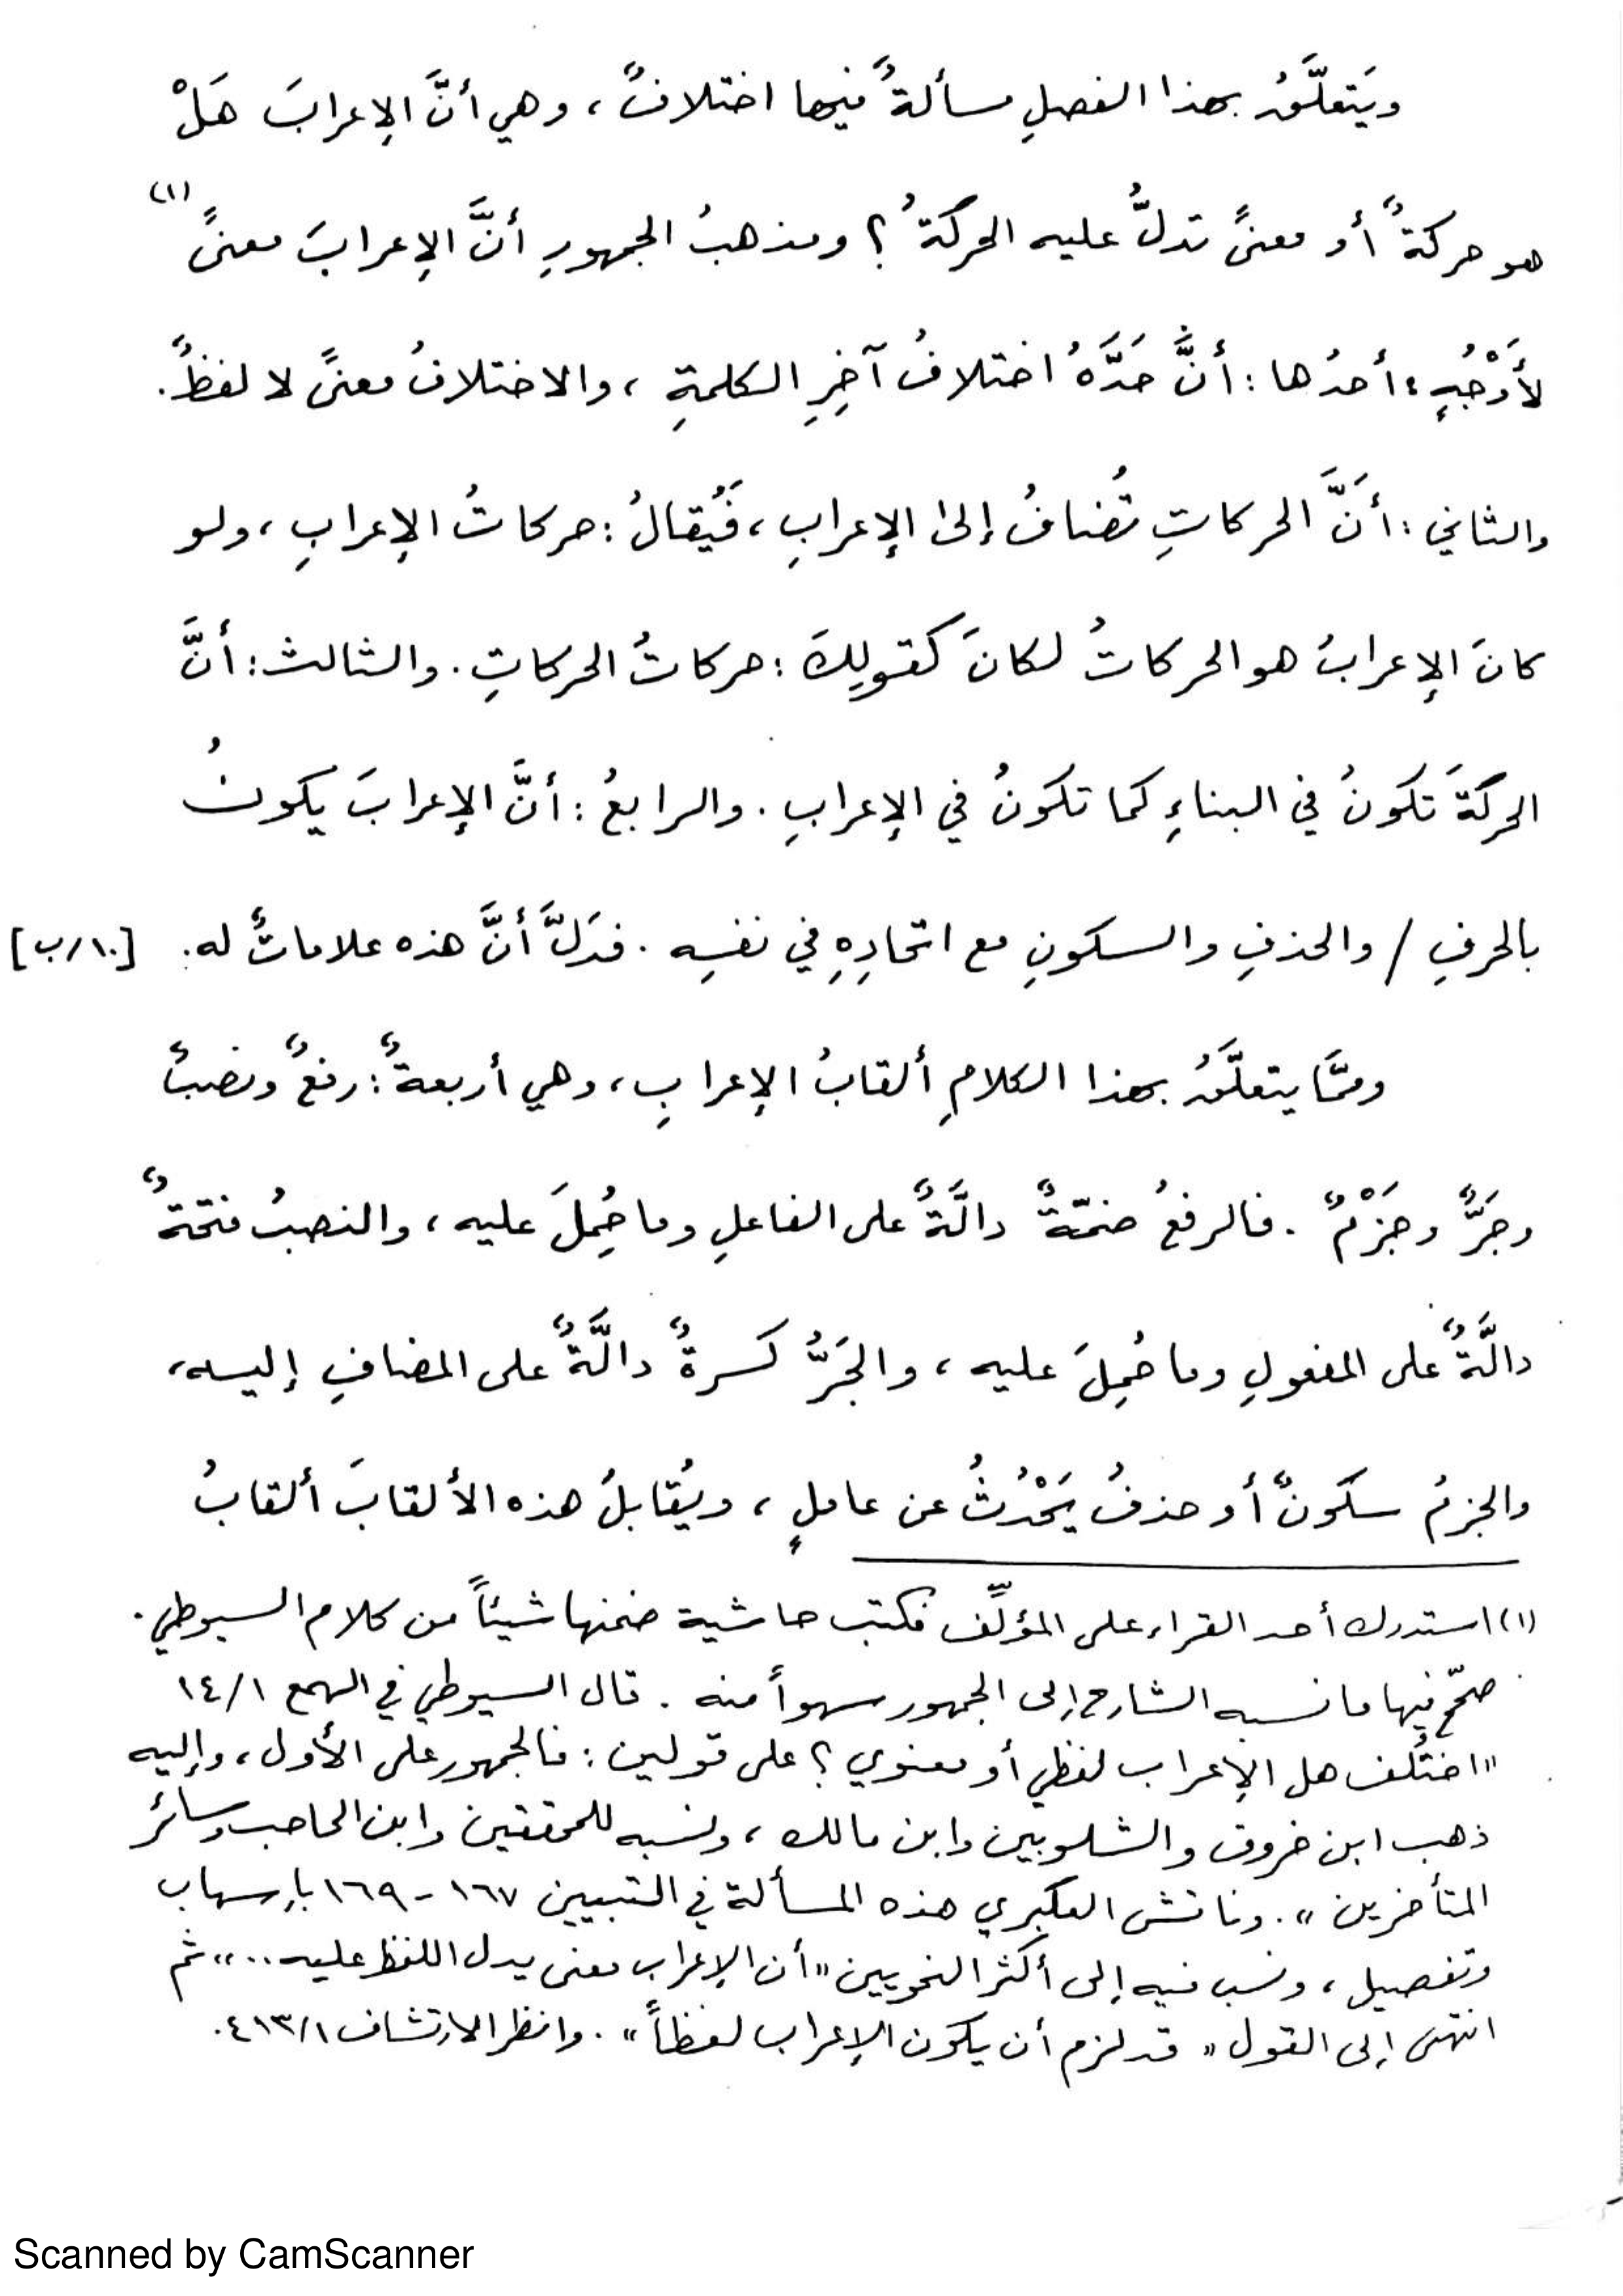 ويَتعلَّقُ بهذا الفصلِ مسألةٌ فيها اختلافٌ ، وهي أنَّ الإعرابَ هَلْ
هو حركةٌ أو معنىً تدلُّ عليه الحركةُ ؟ ومذهبُ الجمهورِ أنَّ الإعرابَ معنىً (١)
لأَوْجُهٍ ؛ أحدُها : أنَّ حَدَّهُ اختلافُ آخِرِ الكلمةِ ، والاختلافُ معنىً لا لفظٌ .
والثاني : أَنَّ الحركاتِ تُضافُ إلى الإعرابِ ، فَيُقالُ : حركاتُ الإعرابِ ، ولو
كانَ الإعرابُ هو الحركاتُ لكانَ كقولِكَ : حركاتُ الحركاتِ . والثالث : أنَّ
الحركةَ تكونُ في البناءِ كما تكونُ في الإعرابِ . والرابعُ : أنَّ الإعرابَ يكونُ
بالحرفِ / والحذفِ والسكونِ مع اتحادِهِ في نفسِه . فدَلَّ أنَّ هذه علاماتٌ له . [١٠/ب]
وممَّا يتعلَّقُ بهذا الكلامِ ألقابُ الإعرابِ ، وهي أربعةٌ : رفعٌ ونصبٌ
وجَرٌّ وجَزْمٌ . فالرفعُ ضمّةٌ دالَّةٌ على الفاعلِ وما حُمِلَ عليه ، والنصبُ فتحةٌ
دالَّةٌ على المفعولِ وما حُمِلَ عليه ، والجَرُّ كسرةٌ دالَّةٌ على المضافِ إليه ،
والجزمُ سكونٌ أو حذفُ يَحْدُثُ عن عاملٍ ، ويُقابلُ هذه الألقابَ ألقابُ
(١) استدرك أحد القراء على المؤلِّف فكتب حاشية ضمنها شيئاً من كلام السيوطي .
صحّح فيها ما نسبه الشارح إلى الجمهور سهواً منه . قال السيوطي في الهمع ١/١٤
"اختُلف هل الإعراب لفظي أو معنوي ؟ على قولين : فالجمهور على الأول ، وإليه
ذهب ابن خروف والشلوبين وابن مالك ، ونسبه للمحققين وابن الحاجب وسائر
المتأخرين " . وناقش العكبري هذه المسألة في التبيين ١٦٧ - ١٦٩ بإسهاب
وتفصيل ، ونسب فيه إلى أكثر النحويين "أن الإعراب معنى يدل اللفظ عليه .." ثم
انتهى إلى القول " قد لزم أن يكون الإعراب لفظاً " . وانظر الارتشاف ١/٤١٣ .
Scanned by CamScanner